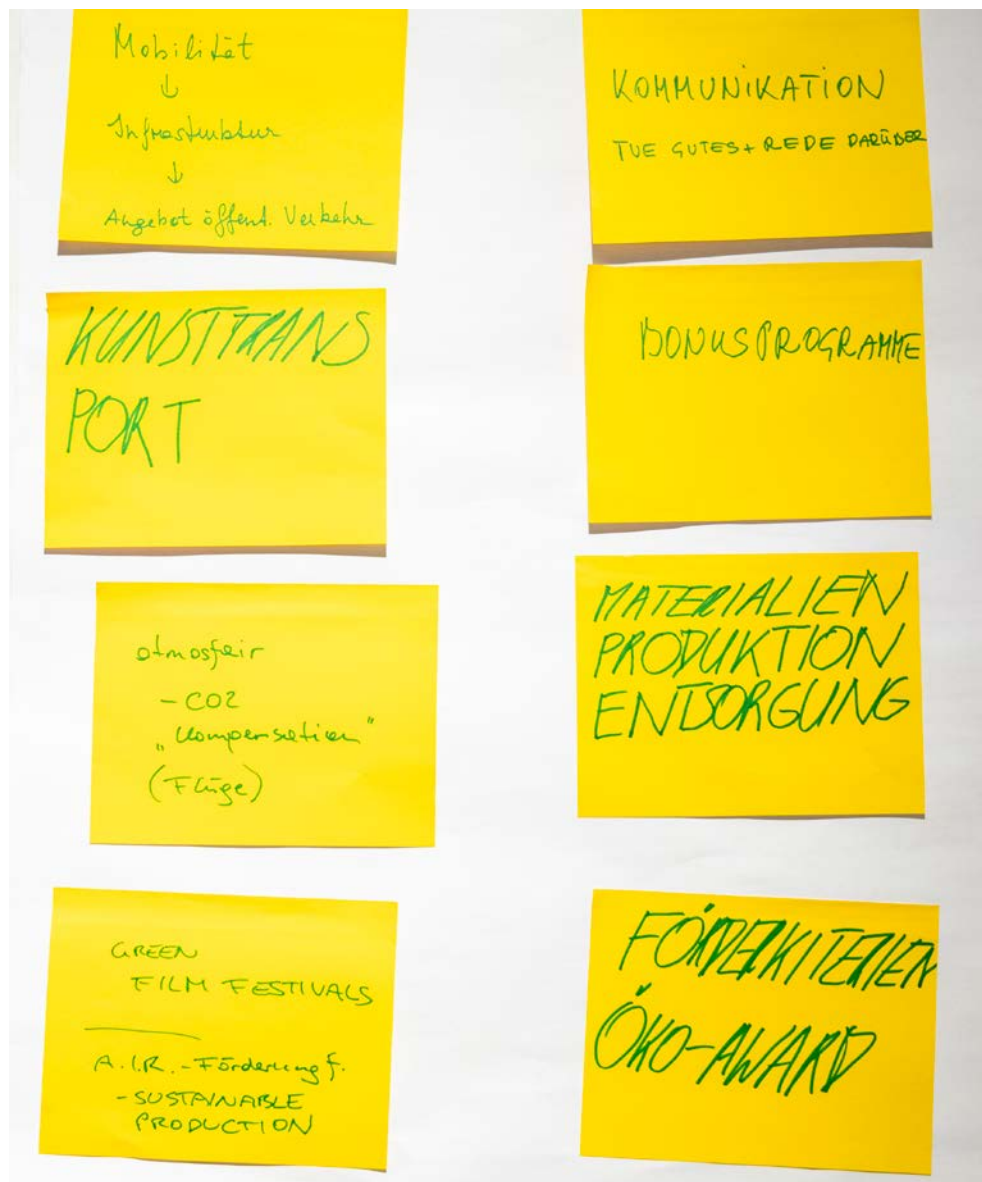 Mobilität
↓
Infrastruktur
↓
Angebot öffentl. Verkehr
KUNSTTRANS
PORT
atmosfair
- CO2
„Kompensation“
(Flüge)
GREEN
FILM FESTIVALS
A.I.R.-Förderung f.
- SUSTAINABLE
PRODUCTION
KOMMUNIKATION
TUE GUTES + REDE DARÜBER
BONUSPROGRAMME
MATERIALIEN
PRODUKTION
ENTSORGUNG
FÖRDERKITERIEN
ÖKO-AWARD